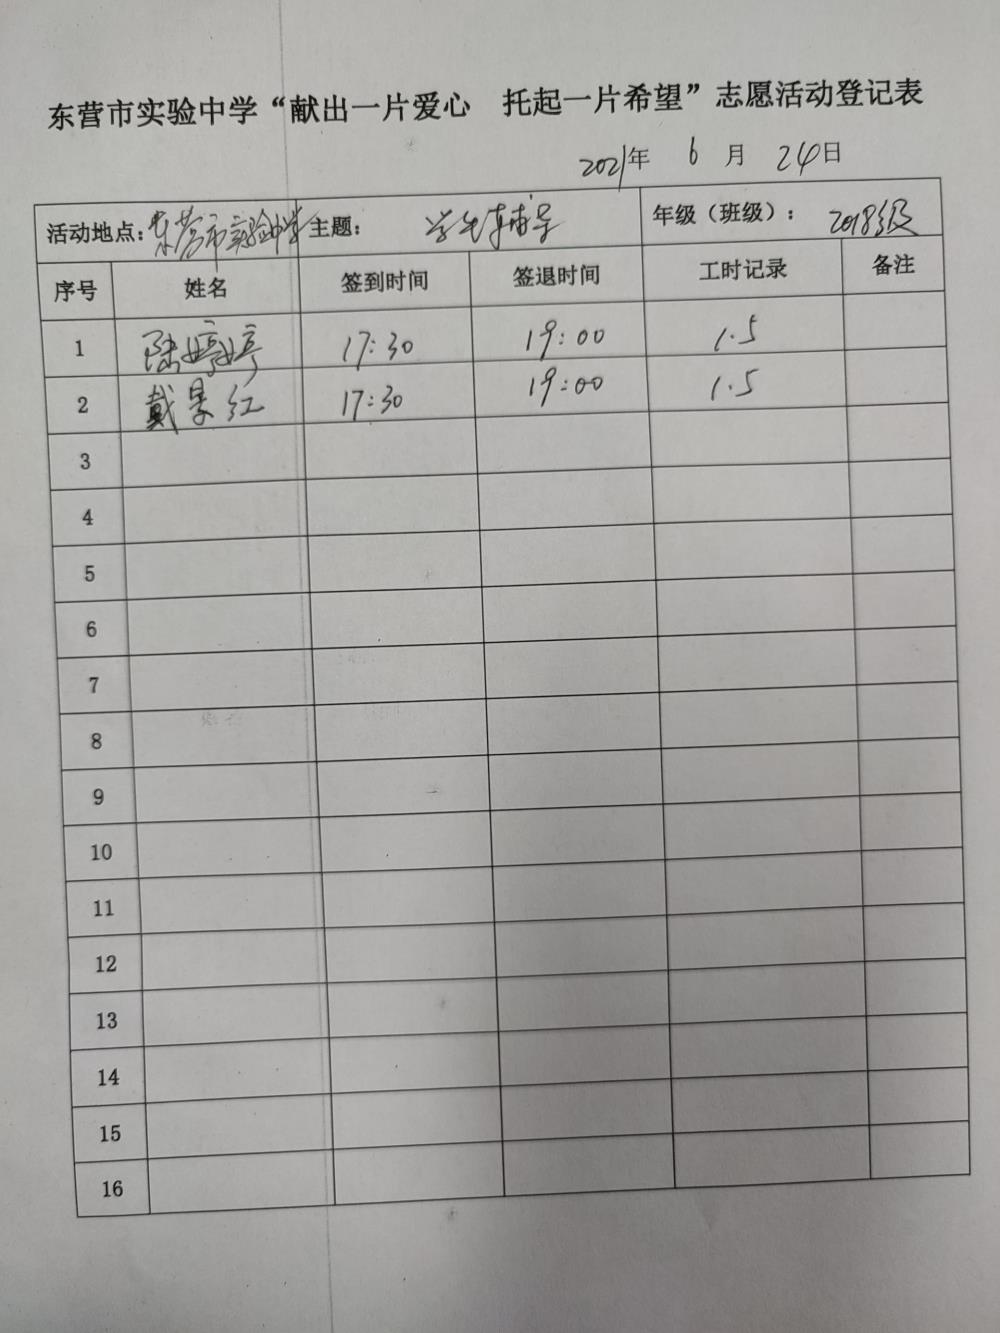 东营市实验中学“献出一片爱心 托起一片希望”志愿活动登记表
2021年 6 月 24日
活动地点：东营市实验中学 主题： 学生辅导 年级（班级）： 2018级
序号 姓名 签到时间 签退时间 工时记录 备注
1 陆婷婷 17:30 19:00 1.5
2 戴景红 17:30 19:00 1.5
3
4
5
6
7
8
9
10
11
12
13
14
15
16